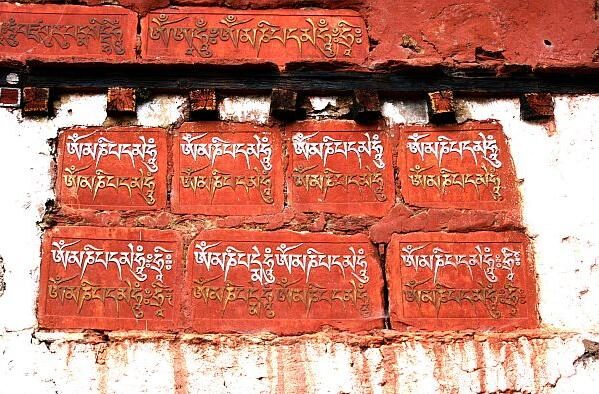 ཨོཾ་མ་ཎི་པདྨེ་ཧཱུྃ་ཨོཾ་མ་ཎི་པད་མེ་ཧཱུྃ་ཧྲཱིཿ
ཨོཾ་མ་ཎི་པད་མེ་ཧཱུྃ
ཨོཾ་མ་ཎི་པད་མེ་ཧཱུྃ
ཨོཾ་མ་ཎི་པད་མེ་ཧཱུྃ
ཨོཾ་མ་ཎི་པད་མེ་ཧཱུྃ
ཨོཾ་མ་ཎི་པད་མེ་ཧཱུྃ
ཨོཾ་མ་ཎི་པད་མེ་ཧཱུྃ
ཨོཾ་མ་ཎི་པད་མེ་ཧཱུྃ
ཨོཾ་མ་ཎི་པད་མེ་ཧཱུྃ
ཨོཾ་མ་ཎི་པད་མེ་ཧཱུྃ་ཧྲཱིཿ
ཨོཾ་མ་ཎི་པད་མེ་ཧཱུྃ་ཧྲཱིཿ
ཨོཾ་མ་ཎི་པདྨེ་ཧཱུྃ་ཨོཾ་མ་ཎི་པད་མེ་ཧཱུྃ
ཨོཾ་མ་ཎི་པདྨེ་ཧཱུྃ་ཨོཾ་མ་ཎི་པད་མེ་ཧཱུྃ
ཨོཾ་མ་ཎི་པད་མེ་ཧཱུྃ་ཧྲཱིཿ
ཨོཾ་མ་ཎི་པད་མེ་ཧཱུྃ་ཧྲཱིཿ